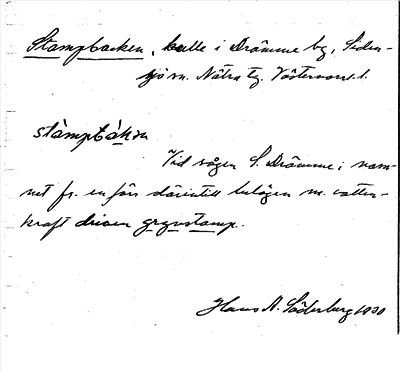 Stampbacken, kulle i Drömme by, Siden-
sjö sn. Nätra tg. Västernorrl. l.
stàmpbákən
Vid vägen S. Drömme; nam-
net fr. en förr därintill belägen m. vatten-
kraft driven grynstamp.
Hans A. Söderberg 1930